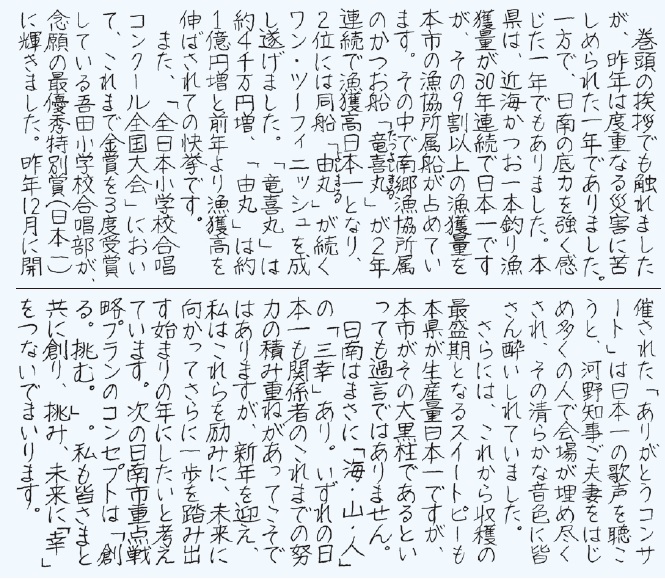 巻頭の挨拶でも触れました
が、昨年は度重なる災害に苦
しめられた一年でありました。
一方で、日南の底力を強く感
じた一年でもありました。本
県は、近海かつお一本釣り漁
獲量が30年連続で日本一です
が、その9割以上の漁獲量を
本市の漁協所属船が占めてい
ます。その中で南郷漁協所属
のかつお船「竜喜丸」が2年
連続で漁獲高日本一となり、
2位には同船「由丸」が続く
ワン・ツーフィニッシュを成
し遂げました。「竜喜丸」は
約4千万円増、「由丸」は約
1億円増と前年より漁獲高を
伸ばされての快挙です。
また、「全日本小学校合唱
コンクール全国大会」におい
て、これまで金賞を3度受賞
している吾田小学校合唱部が、
念願の最優秀特別賞(日本一)
に輝きました。昨年12月に開
催された「ありがとうコンサ
ート」は日本一の歌声を聴こ
うと、河野知事ご夫妻をはじ
め多くの人で会場が埋め尽く
され、その清らかな音色に皆
さん酔いしれていました。
さらには、これから収穫の
最盛期となるスイートピーも
本県が生産量日本一ですが、
本市がその大黒柱であるとい
っても過言ではありません。
日南はまさに「海・山・人」
の「三幸」あり。いずれの日
本一も関係者のこれまでの努
力の積み重ねがあってこそで
はありますが、新年を迎え、
私はこれらを励みに、未来に
向かってさらに一歩を踏み出
す始まりの年にしたいと考え
ています。次の日南市重点戦
略プランのコンセプトは「創
る。挑む。」。私も皆さまと
共に創り、挑み、未来に「幸」
をつないでまいります。